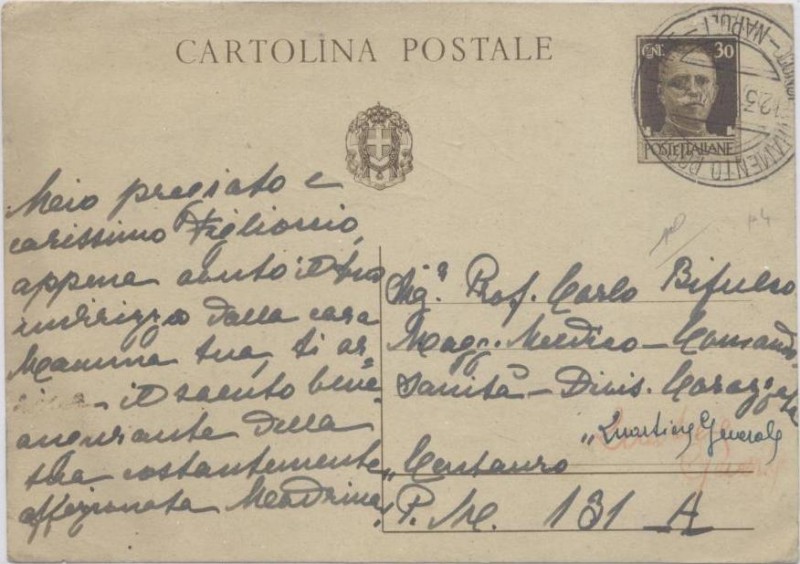 CARTOLINA POSTALE
CENT. 30
POSTE ITALIANE
NAPOLI
Mio pregiato e
carissimo Figlioccio,
appena avuto il tuo
indirizzo dalla cara
Mamma tua, ti ar=
il saluto bene=
augurante della
tua costantemente
affezionata Madrina!
Sig. Prof. Carlo Bifulco
Magg. Medico - Comando
Sanità - Divis. Corazzata
"Quartier Generale
"Centauro
P. M. 131 A